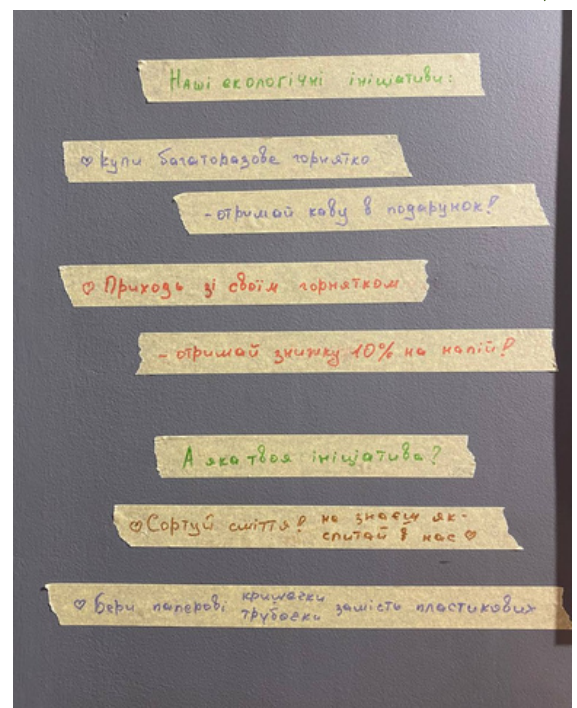 Наші екологічні ініціативи:
♡ Купи багаторазове горнятко
- отримай каву в подарунок!
♡ Приходь зі своїм горнятком
- отримай знижку 10% на напій!
А яка твоя ініціатива?
♡ Сортуй сміття! не знаєш як-
спитай в нас ♡
♡ Бери паперові кришечки трубочки замість пластикових